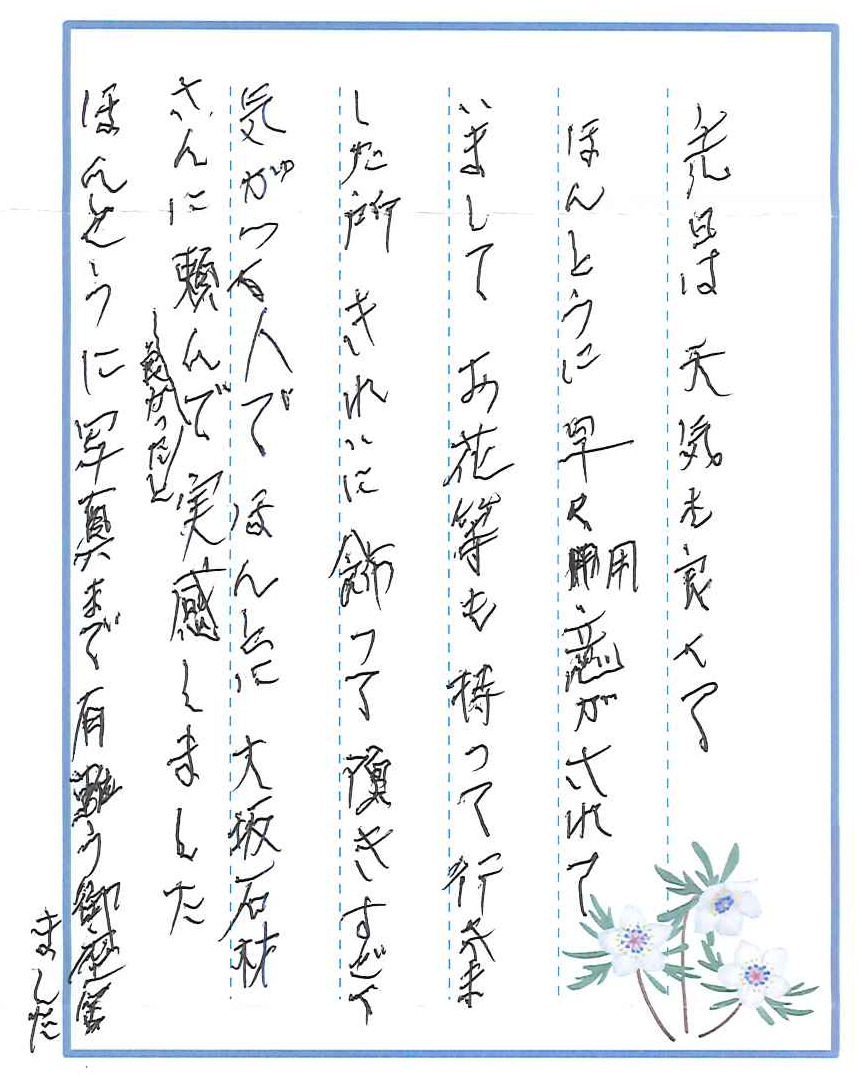 先日は 天気も良くて
ほんとうに 早く用意がされて
いまして お花等も 持って行きま
した所 きれいに 飾って 頂きすごく
気がつく人で ほんとに 大坂石材
さんに頼んで良かったと実感しました
ほんとうに 写真まで 有難う御座い
ました